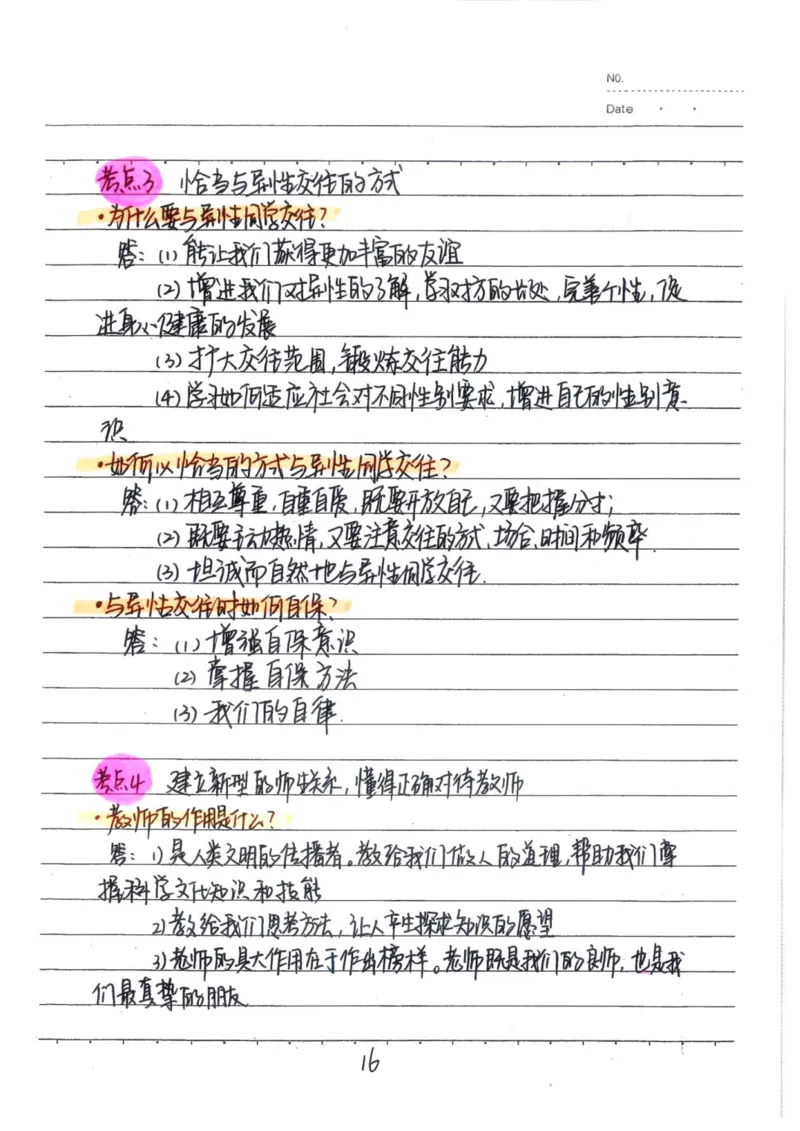 NO.
Date
考点3 恰当与异性交往的方式
·为什么要与异性同学交往？
答：(1) 能让我们获得更加丰富的友谊
(2) 增进我们对异性的了解，学习对方的长处，完善个性，促
进身心健康的发展
(3) 扩大交往范围，锻炼交往能力
(4) 学习如何适应社会对不同性别要求，增进自己的性别意
识
·如何以恰当的方式与异性同学交往？
答：(1) 相互尊重，自重自爱，既要开放自己，又要把握分寸；
(2) 既要主动热情，又要注意交往的方式、场合、时间和频率.
(3) 坦诚而自然地与异性同学交往.
·与异性交往时如何自保？
答：(1) 增强自保意识
(2) 掌握自保方法
(3) 我们的自律.
考点4 建立新型的师生关系，懂得正确对待教师
·教师的作用是什么？
答：1) 是人类文明的传播者。教给我们做人的道理，帮助我们掌
握科学文化知识和技能
2) 教给我们思考方法，让人产生探求知识的愿望
3) 老师的具大作用在于作出榜样。老师既是我们的良师，也是我
们最真挚的朋友
16